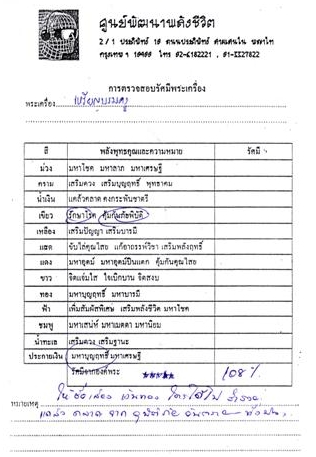 ศูนย์พัฒนาพลังชีวิต
2/1 ประดิพัทธ์ 10 ถนนประดิพัทธ์ สามเสนใน พญาไท
กรุงเทพฯ 10400 โทร 02-6182221, 01-3327822
การตรวจสอบรัศมีพระเครื่อง
พระเครื่อง เหรียญบรมครู
สี พลังพุทธคุณและความหมาย รัศมี
ม่วง มหาโชค มหาลาภ มหาเศรษฐี
คราม เสริมดวง เสริมบุญฤทธิ์ พุทธาคม
น้ำเงิน แคล้วคลาด คงกระพันชาตรี
เขียว รักษาโรค คุ้มกันภัยพิบัติ
เหลือง เสริมปัญญา เสริมบารมี
แสด ขับไล่คุณไสย แก้อาถรรพ์วิชา เสริมพลังฤทธิ์
แดง มหาอุตม์ มหาอุตม์ปืนแตก คุ้มกันคุณไสย
ขาว จิตแจ่มใส ใจเบิกบาน จิตสงบ
ทอง มหาบุญฤทธิ์ มหาบารมี
ฟ้า เพิ่มสัมผัสพิเศษ เสริมพลังชีวิต มหาโชค
ชมพู มหาเสน่ห์ มหาเมตตา มหานิยม
น้ำทะเล เสริมดวง เสริมฐานะ
ประกายเงิน มหาบุญฤทธิ์ มหาเศรษฐี
รัศมีจากองค์พระ ***** 108%
ให้ชื่อเสียง เงินทอง ใครได้ไป ร่ำรวย
หมายเหตุ แคล้วคลาด จาก อุบัติภัย อันตราย